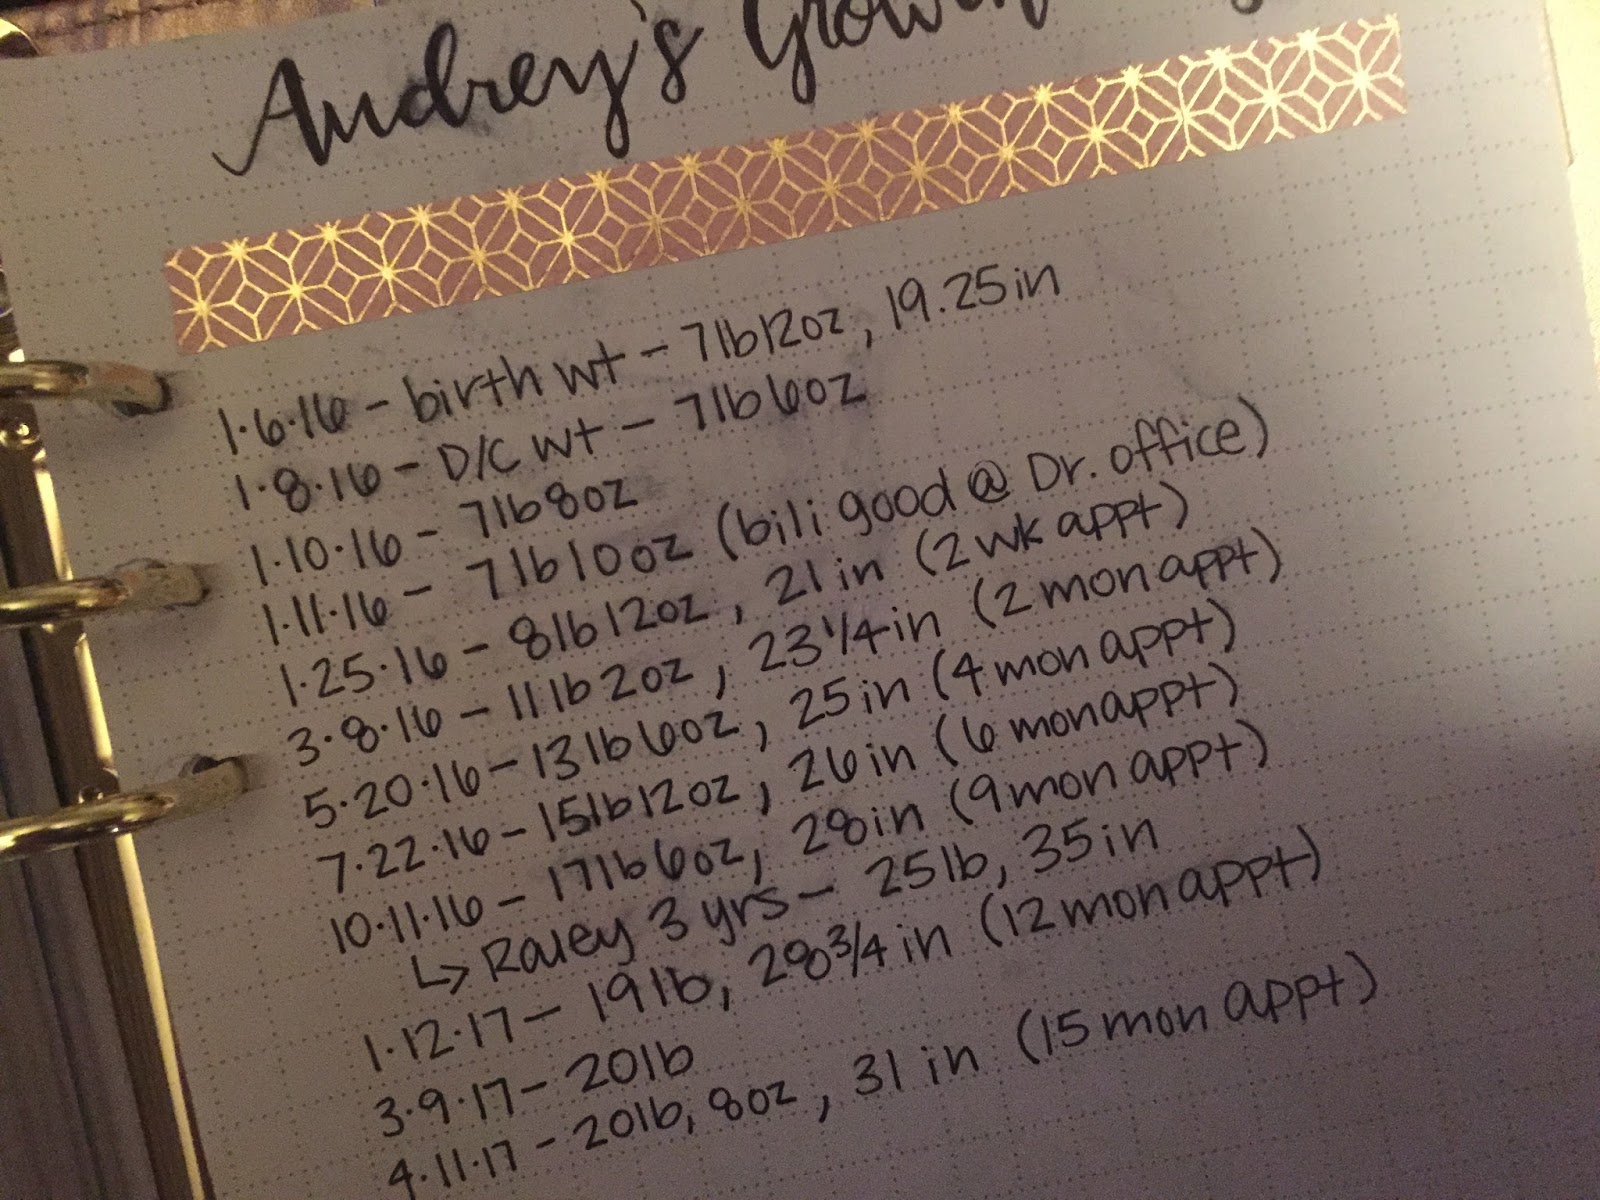 Audrey's Growth
1.6.16 - birth wt - 7lb12oz, 19.25in
1.8.16 - D/C wt - 7lb6oz
1.10.16 - 7lb8oz
1.11.16 - 7lb10oz (bili good @ Dr. office)
1.25.16 - 8lb12oz, 21in (2wk appt)
3.8.16 - 11lb2oz, 23 1/4in (2 mon appt)
5.20.16 - 13lb6oz, 25in (4 mon appt)
7.22.16 - 15lb12oz, 26in (6 mon appt)
10.11.16 - 17lb6oz, 28in (9 mon appt)
↳ Raley 3 yrs - 25lb, 35in
1.12.17 - 19lb, 28 3/4 in (12 mon appt)
3.9.17 - 20lb
4.11.17 - 20lb, 8oz, 31 in (15 mon appt)